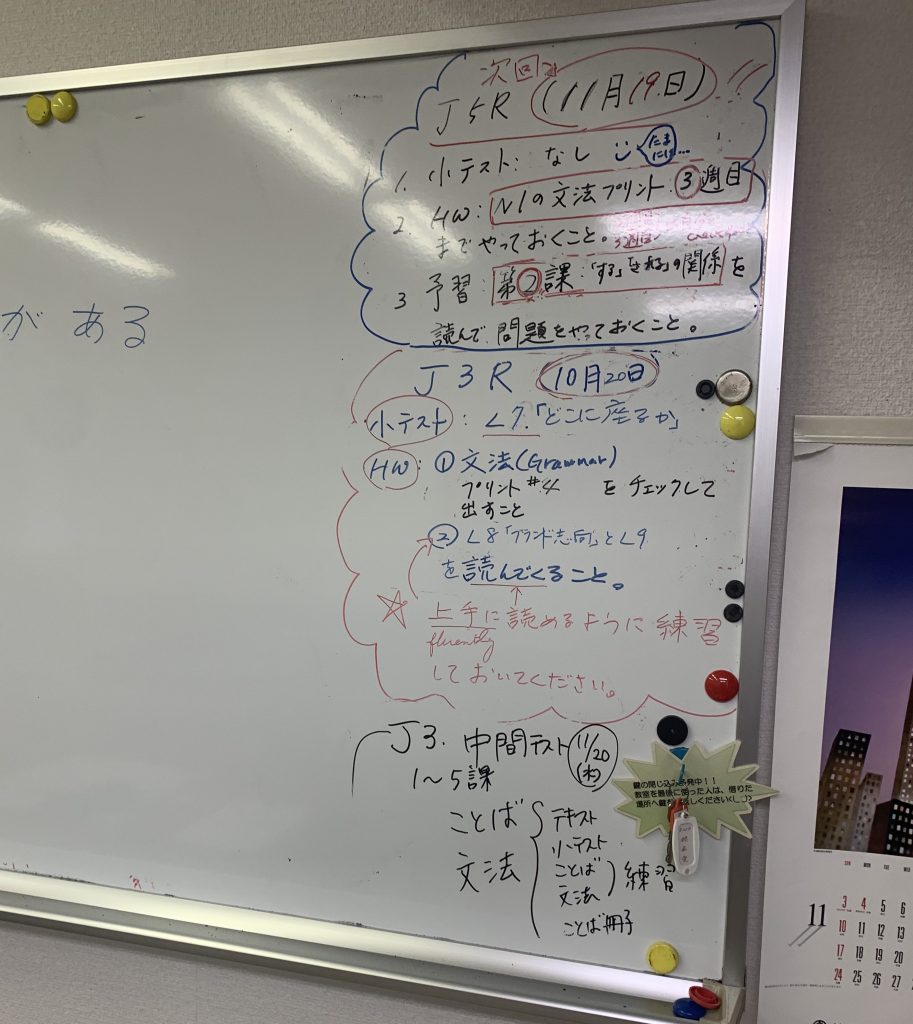 がある
次回
J5R (11月19日)
1. 小テスト: なし たまには…
2. HW: N1の文法プリント: ③週目
までやっておくこと。
3 予習: 第②課: 「する」「される」の関係を
読んで問題をやっておくこと。
J3R 10月20日
小テスト: L7.「どこに座るか」
HW: ①文法(Grammar)
プリント#4 をチェックして
出すこと
② L8「ブランド志向」とL9
を読んでくること。
☆ 上手に読めるように練習
fluently
しておいてください。
J3. 中間テスト 11/20
(木)
1〜5課
ことば
文法
テキスト
小テスト
ことば
文法
練習
ことば冊子
鍵の閉じ込み多発中!!
教室を最後に使った人は、借りた
場所へ鍵を
しください(_ _)?
11
SUN MON TUE WED
3 4 5 6
10 11 12 13
17 18 19 20
24 25 26 27